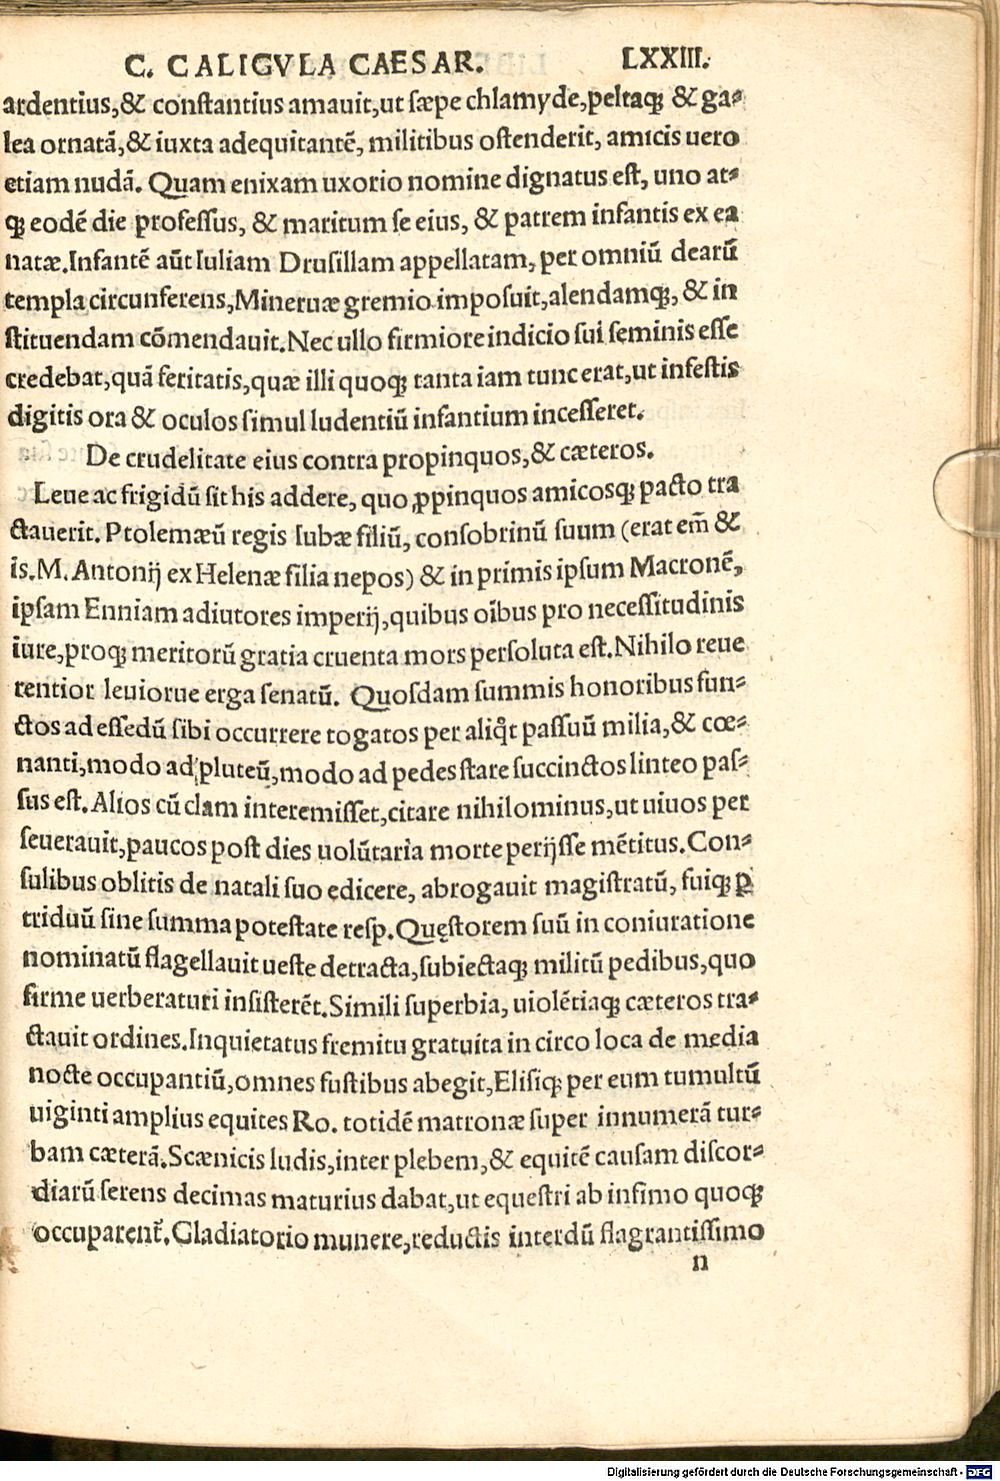 C. CALIGVLA CAESAR. LXXIII.
ardentius,& constantius amauit,ut sæpe chlamyde,peltaqꝫ & ga-
lea ornatã,& iuxta adequitantẽ, militibus ostenderit, amicis uero
etiam nudã. Quam enixam uxorio nomine dignatus est, uno at-
qꝫ eodẽ die professus, & maritum se eius, & patrem infantis ex ea
natæ.Infantẽ aũt Iuliam Drusillam appellatam, per omniũ dearũ
templa circunferens,Mineruæ gremio imposuit,alendamqꝫ, & in
stituendam cõmendauit.Nec ullo firmiore indicio sui seminis esse
credebat,quã feritatis,quæ illi quoqꝫ tanta iam tunc erat,ut infestis
digitis ora & oculos simul ludentiũ infantium incesseret.
De crudelitate eius contra propinquos,& cæteros.
Leue ac frigidũ sit his addere, quo ꝓpinquos amicosqꝫ pacto tra
ctauerit. Ptolemæũ regis Iubæ filiũ, consobrinũ suum (erat em̃ &
is.M. Antonij ex Helenæ filia nepos) & in primis ipsum Macronẽ,
ipsam Enniam adiutores imperij,quibus oĩbus pro necessitudinis
iure,proqꝫ meritorũ gratia cruenta mors persoluta est.Nihilo reue
rentior leuiorue erga senatũ. Quosdam summis honoribus fun-
ctos ad essedũ sibi occurrere togatos per aliqͦt passuũ milia,& cœ-
nanti,modo ad pluteũ,modo ad pedes stare succinctos linteo pas-
sus est. Alios cũ clam interemisset,citare nihilominus,ut uiuos per
seuerauit,paucos post dies uolũtaria morte perijsse mẽtitus.Con-
sulibus oblitis de natali suo edicere, abrogauit magistratũ, fuiqꝫ ꝑ
triduũ sine summa potestate resp.Quęstorem suũ in coniuratione
nominatũ flagellauit ueste detracta,subiectaqꝫ militũ pedibus,quo
firme uerberaturi insisterẽt.Simili superbia, uiolẽtiaqꝫ cæteros tra-
ctauit ordines.Inquietatus fremitu gratuita in circo loca de media
nocte occupantiũ,omnes fustibus abegit,Elisiqꝫ per eum tumultũ
uiginti amplius equites Ro. totidẽ matronæ super innumerã tur-
bam cæterã.Scænicis ludis,inter plebem,& equitẽ causam discor-
diarũ serens decimas maturius dabat,ut equestri ab infimo quoqꝫ
occuparent̃.Gladiatorio munere,reductis interdũ flagrantissimo
n
Digitalisierung gefördert durch die Deutsche Forschungsgemeinschaft - DFG